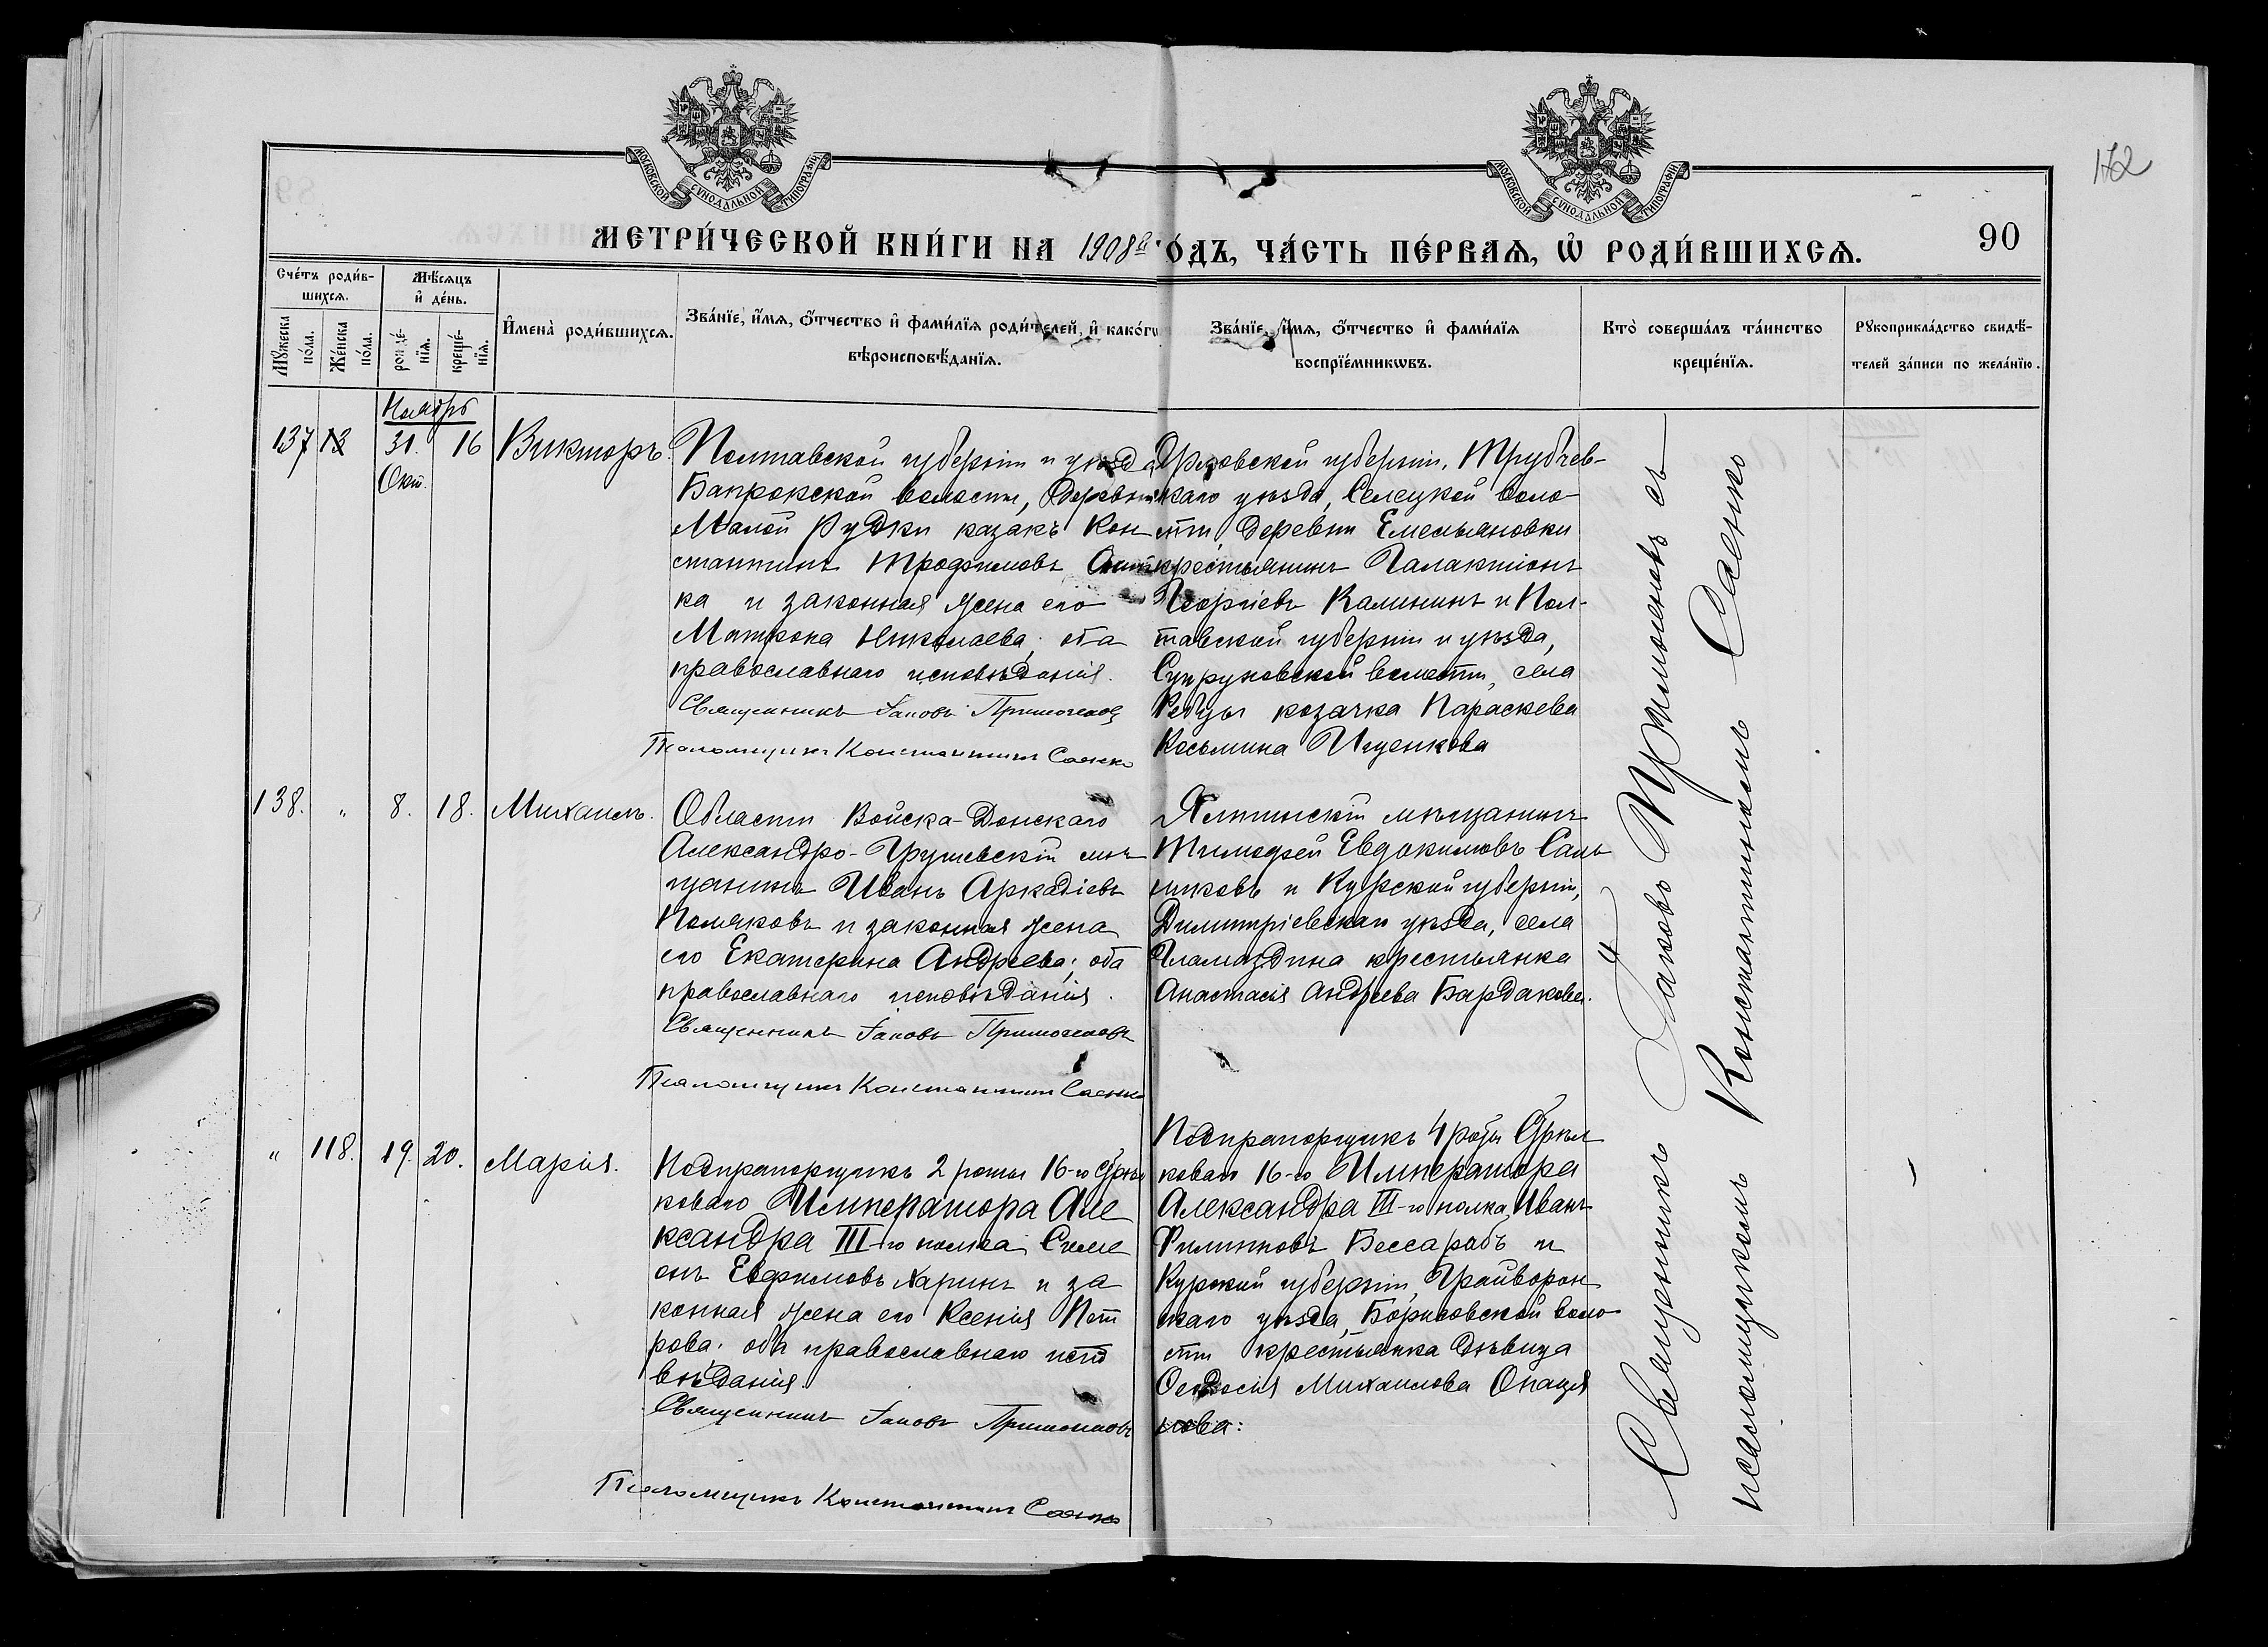 МОСКОВСКОЙ СѴНОДАЛЬНОЙ ТИПОГРАФІИ
МОСКОВСКОЙ СѴНОДАЛЬНОЙ ТИПОГРАФІИ
172
МЕТРИ́ЧЕСКОЙ КНИ́ГИ НА 1908й го́дъ, ЧА́СТЬ ПЕ́РВАѦ, Ѡ҆ РОДИ́ВШИХСѦ.
90
Сче́тъ роди́в-
шихсѧ.
Мꙋ́жеска
по́ла.
Же́нска
по́ла.
Мѣ́сѧцъ
и҆ де́нь.
рожде́-
нїѧ.
креще́-
нїѧ.
И҆мена̀ роди́вшихсѧ.
Зва́нїе, и҆́мѧ, ѻ҆́тчество и҆ фами́лїѧ роди́телей, и҆ како́гѡ
вѣроисповѣ́данїѧ.
Зва́нїе, и҆́мѧ, ѻ҆́тчество и҆ фами́лїѧ
воспрїе́мникѡвъ.
Кто̀ соверша́лъ та́инство
креще́нїѧ.
Рꙋкоприкла́дство свидѣ́-
телей за́писи по жела́нїю.
Ноябрь
137 31. 16 Викторъ.
Окт.
Полтавской губерніи и уѣзда
волости, деревни
Малой Рудки казакъ Кон
стантинъ Трофимовъ
ка и законная жена его
Матрона Николаева; оба
православнаго исповѣданія.
Священникъ Іаковъ Примоченовъ
Псаломщикъ Константинъ Саенко
Орловской губерніи, Трубчев-
скаго уѣзда, Селецкой воло-
сти, деревни Емельяновки
крестьянинъ Галактіонъ
Георгіевъ Калининъ и Пол-
тавской губерніи и уѣзда,
Супруновской волости, села
козачка Параскева
Косьмина Ищенкова
138. " 8. 18. Михаилъ.
Области Войска-Донскаго
Александро-Грушевскій мѣ
щанинъ Иванъ Аркадіевъ
Поляковъ и законная жена
его Екатерина Андреева; оба
православнаго исповѣданія.
Священникъ Іаковъ Примоченовъ
Псаломщикъ Константинъ Саенко
Ялтинскій мѣщанинъ
Тимофей Евдокимовъ Саль
никовъ и Курской губерніи,
Димитріевскаго уѣзда, села
крестьянка
Анастасія Андреева Бардакова.
" 118. 19. 20. Марія.
Подпрапорщикъ 2 роты 16-го Стрѣл
коваго Императора Але
ксандра III-го полка Симе
онъ Евфимовъ Харинъ и за
конная жена его Ксенія Пет
рова; оба православнаго испо
вѣданія.
Священникъ Іаковъ Примоченовъ
Псаломщикъ Константинъ Саенко
Подпрапорщикъ 4 роты Стрѣл
коваго 16-го Императора
Александра III-го полка, Иванъ
Филипповъ Бессарабъ и
Курской губерніи, Грайворон
скаго уѣзда, Борисовской воло
сти крестьянка дѣвица
Феодосія Михаилова
Священникъ Іаковъ Примоченовъ съ
псаломщикомъ Константиномъ Саенко